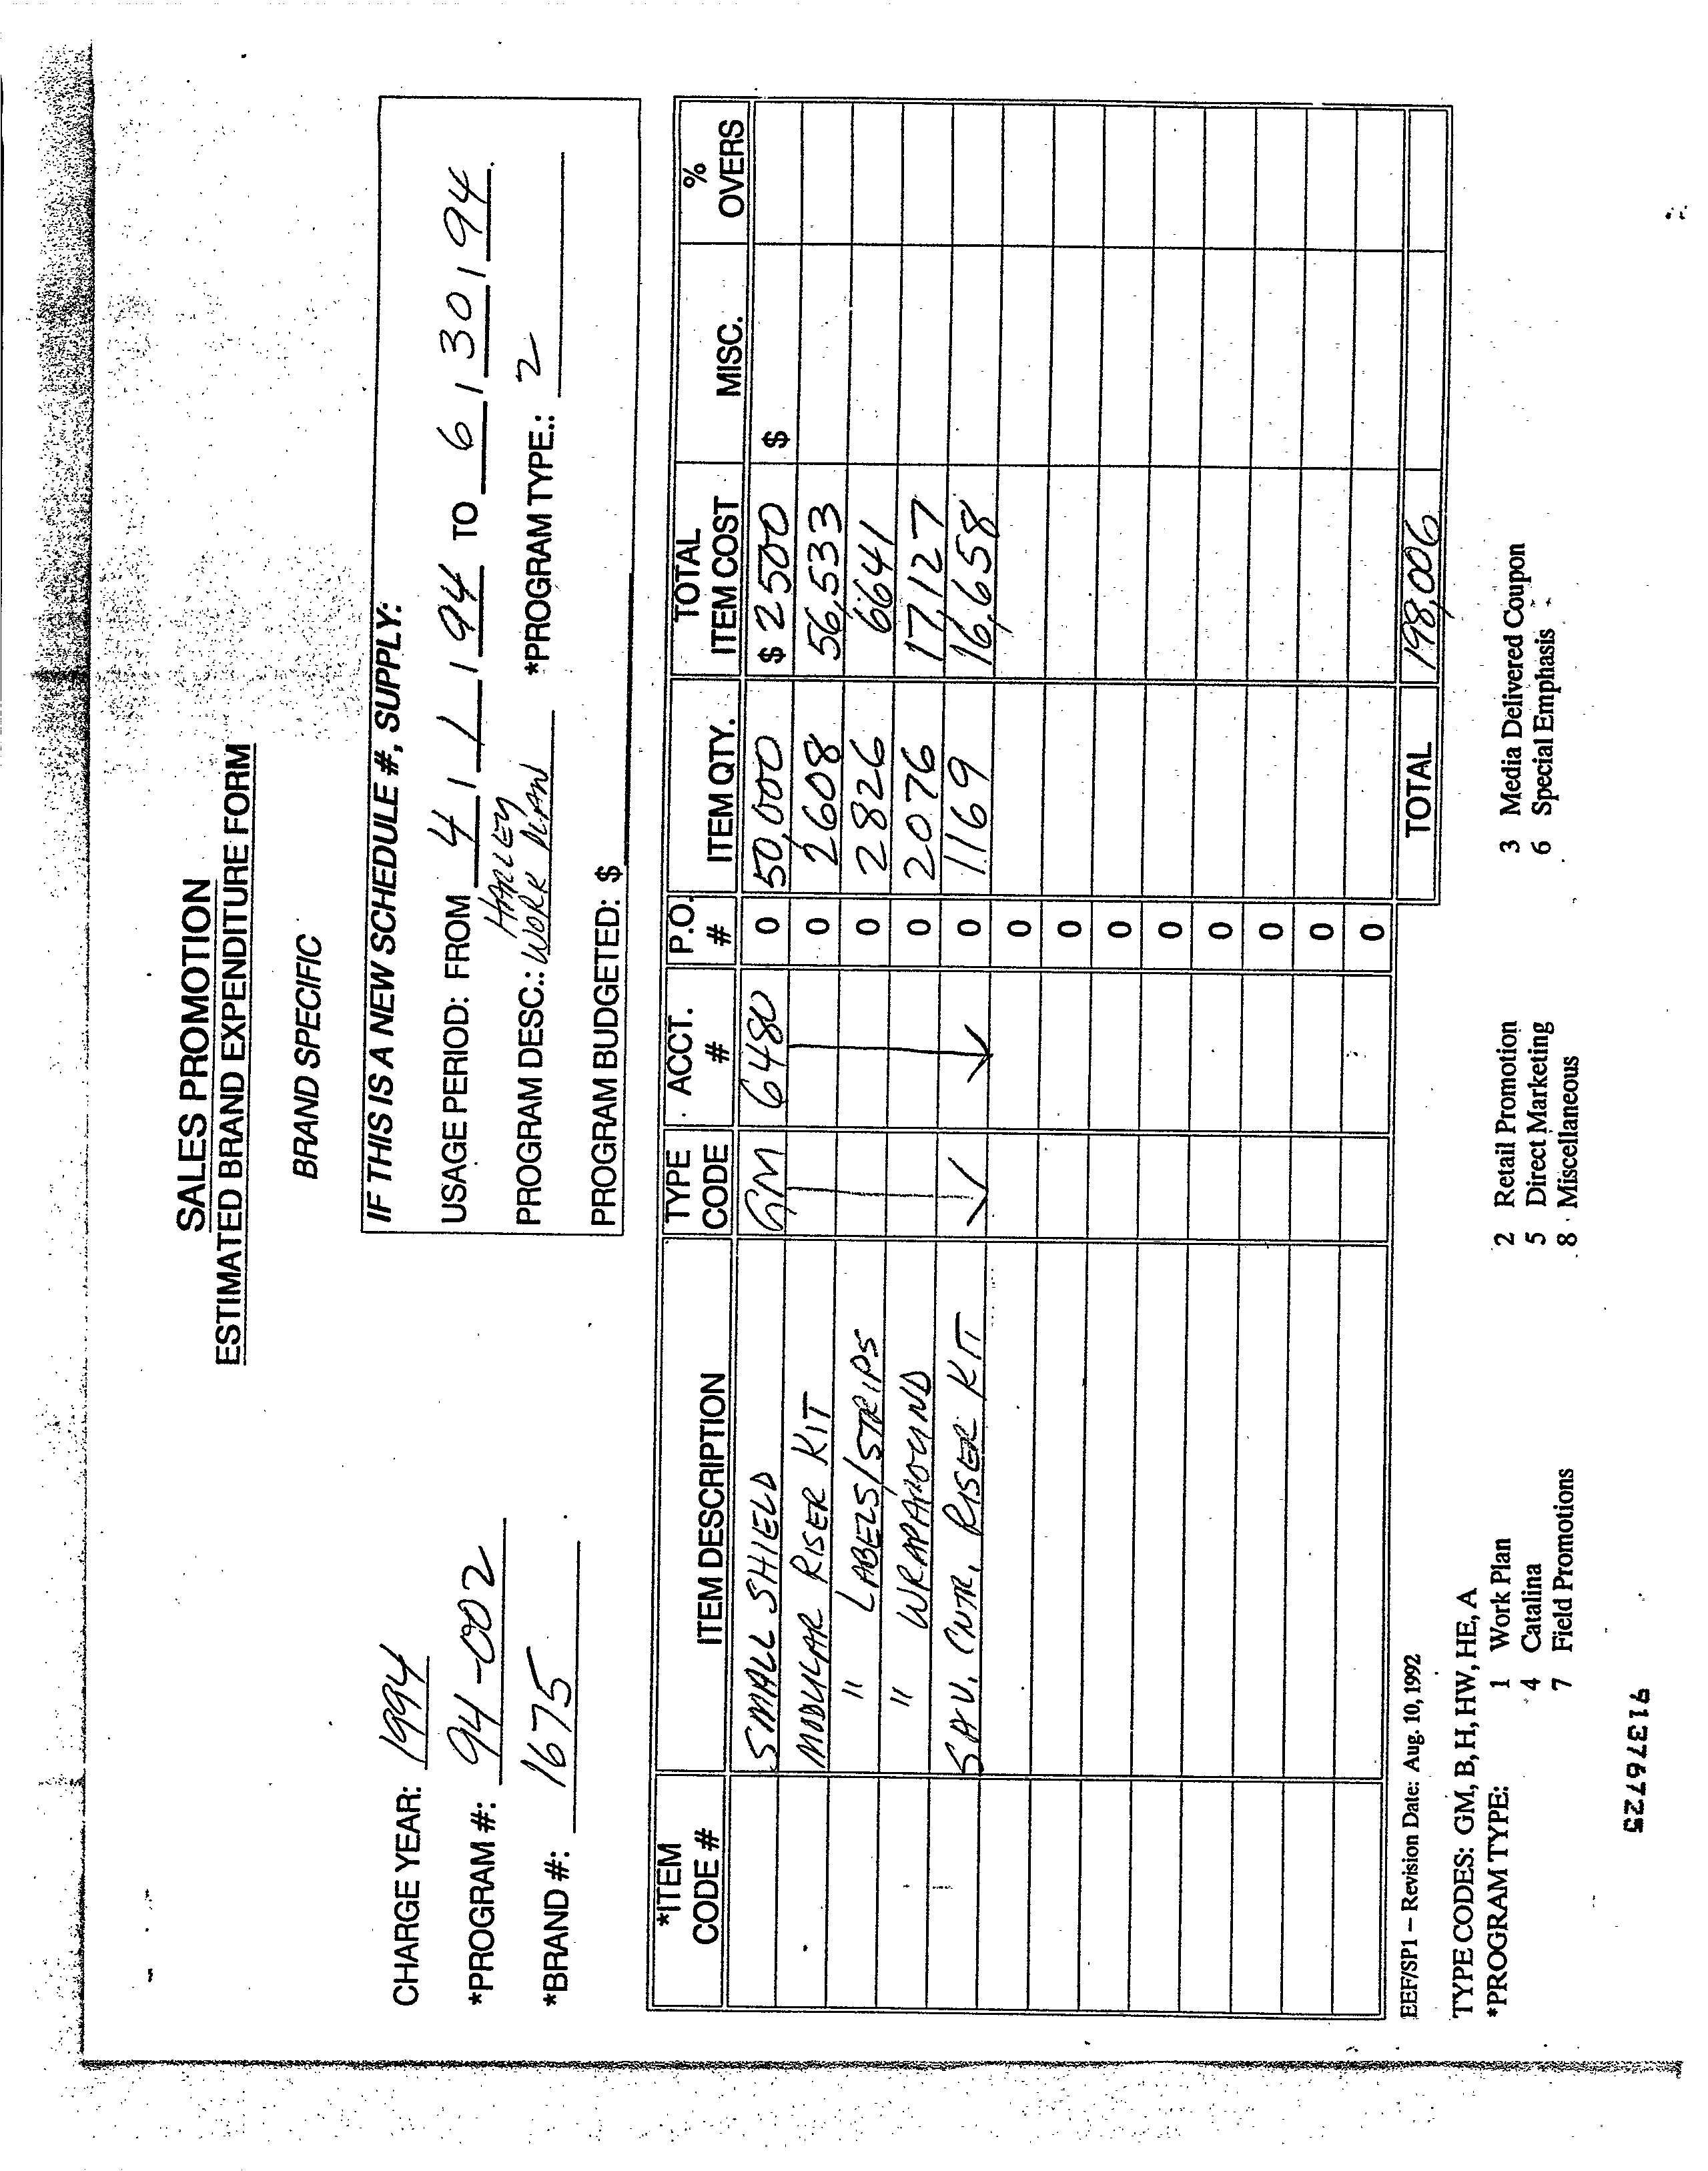 SALES PROMOTION
ESTIMATED BRAND EXPENDITURE FORM
BRAND SPECIFIC
CHARGE YEAR: 1994
*PROGRAM #: 94-002
*BRAND #: 1675
IF THIS IS A NEW SCHEDULE #, SUPPLY:
USAGE PERIOD: FROM 4 / 1 / 94 TO 6 / 30 / 94
HARLEY
PROGRAM DESC.: WORK PLAN *PROGRAM TYPE.: 2
PROGRAM BUDGETED: $
*ITEM CODE # ITEM DESCRIPTION TYPE CODE ACCT. # P.O. # ITEM QTY. TOTAL ITEM COST MISC. % OVERS
SMALL SHIELD GM 6480 0 50,000 $ 2500 $
MODULAR RISER KIT 0 2608 56,533
" LABELS/STRIPS 0 2826 6641
" WRAPAROUND 0 2076 17,127
SAV. CNTR. RISER KIT 0 1169 16,658
0
0
0
0
0
0
0
0
TOTAL 198,006
EEF/SP1 – Revision Date: Aug. 10, 1992
TYPE CODES: GM, B, H, HW, HE, A
*PROGRAM TYPE: 1 Work Plan 2 Retail Promotion 3 Media Delivered Coupon
4 Catalina 5 Direct Marketing 6 Special Emphasis
7 Field Promotions 8 Miscellaneous
91376725